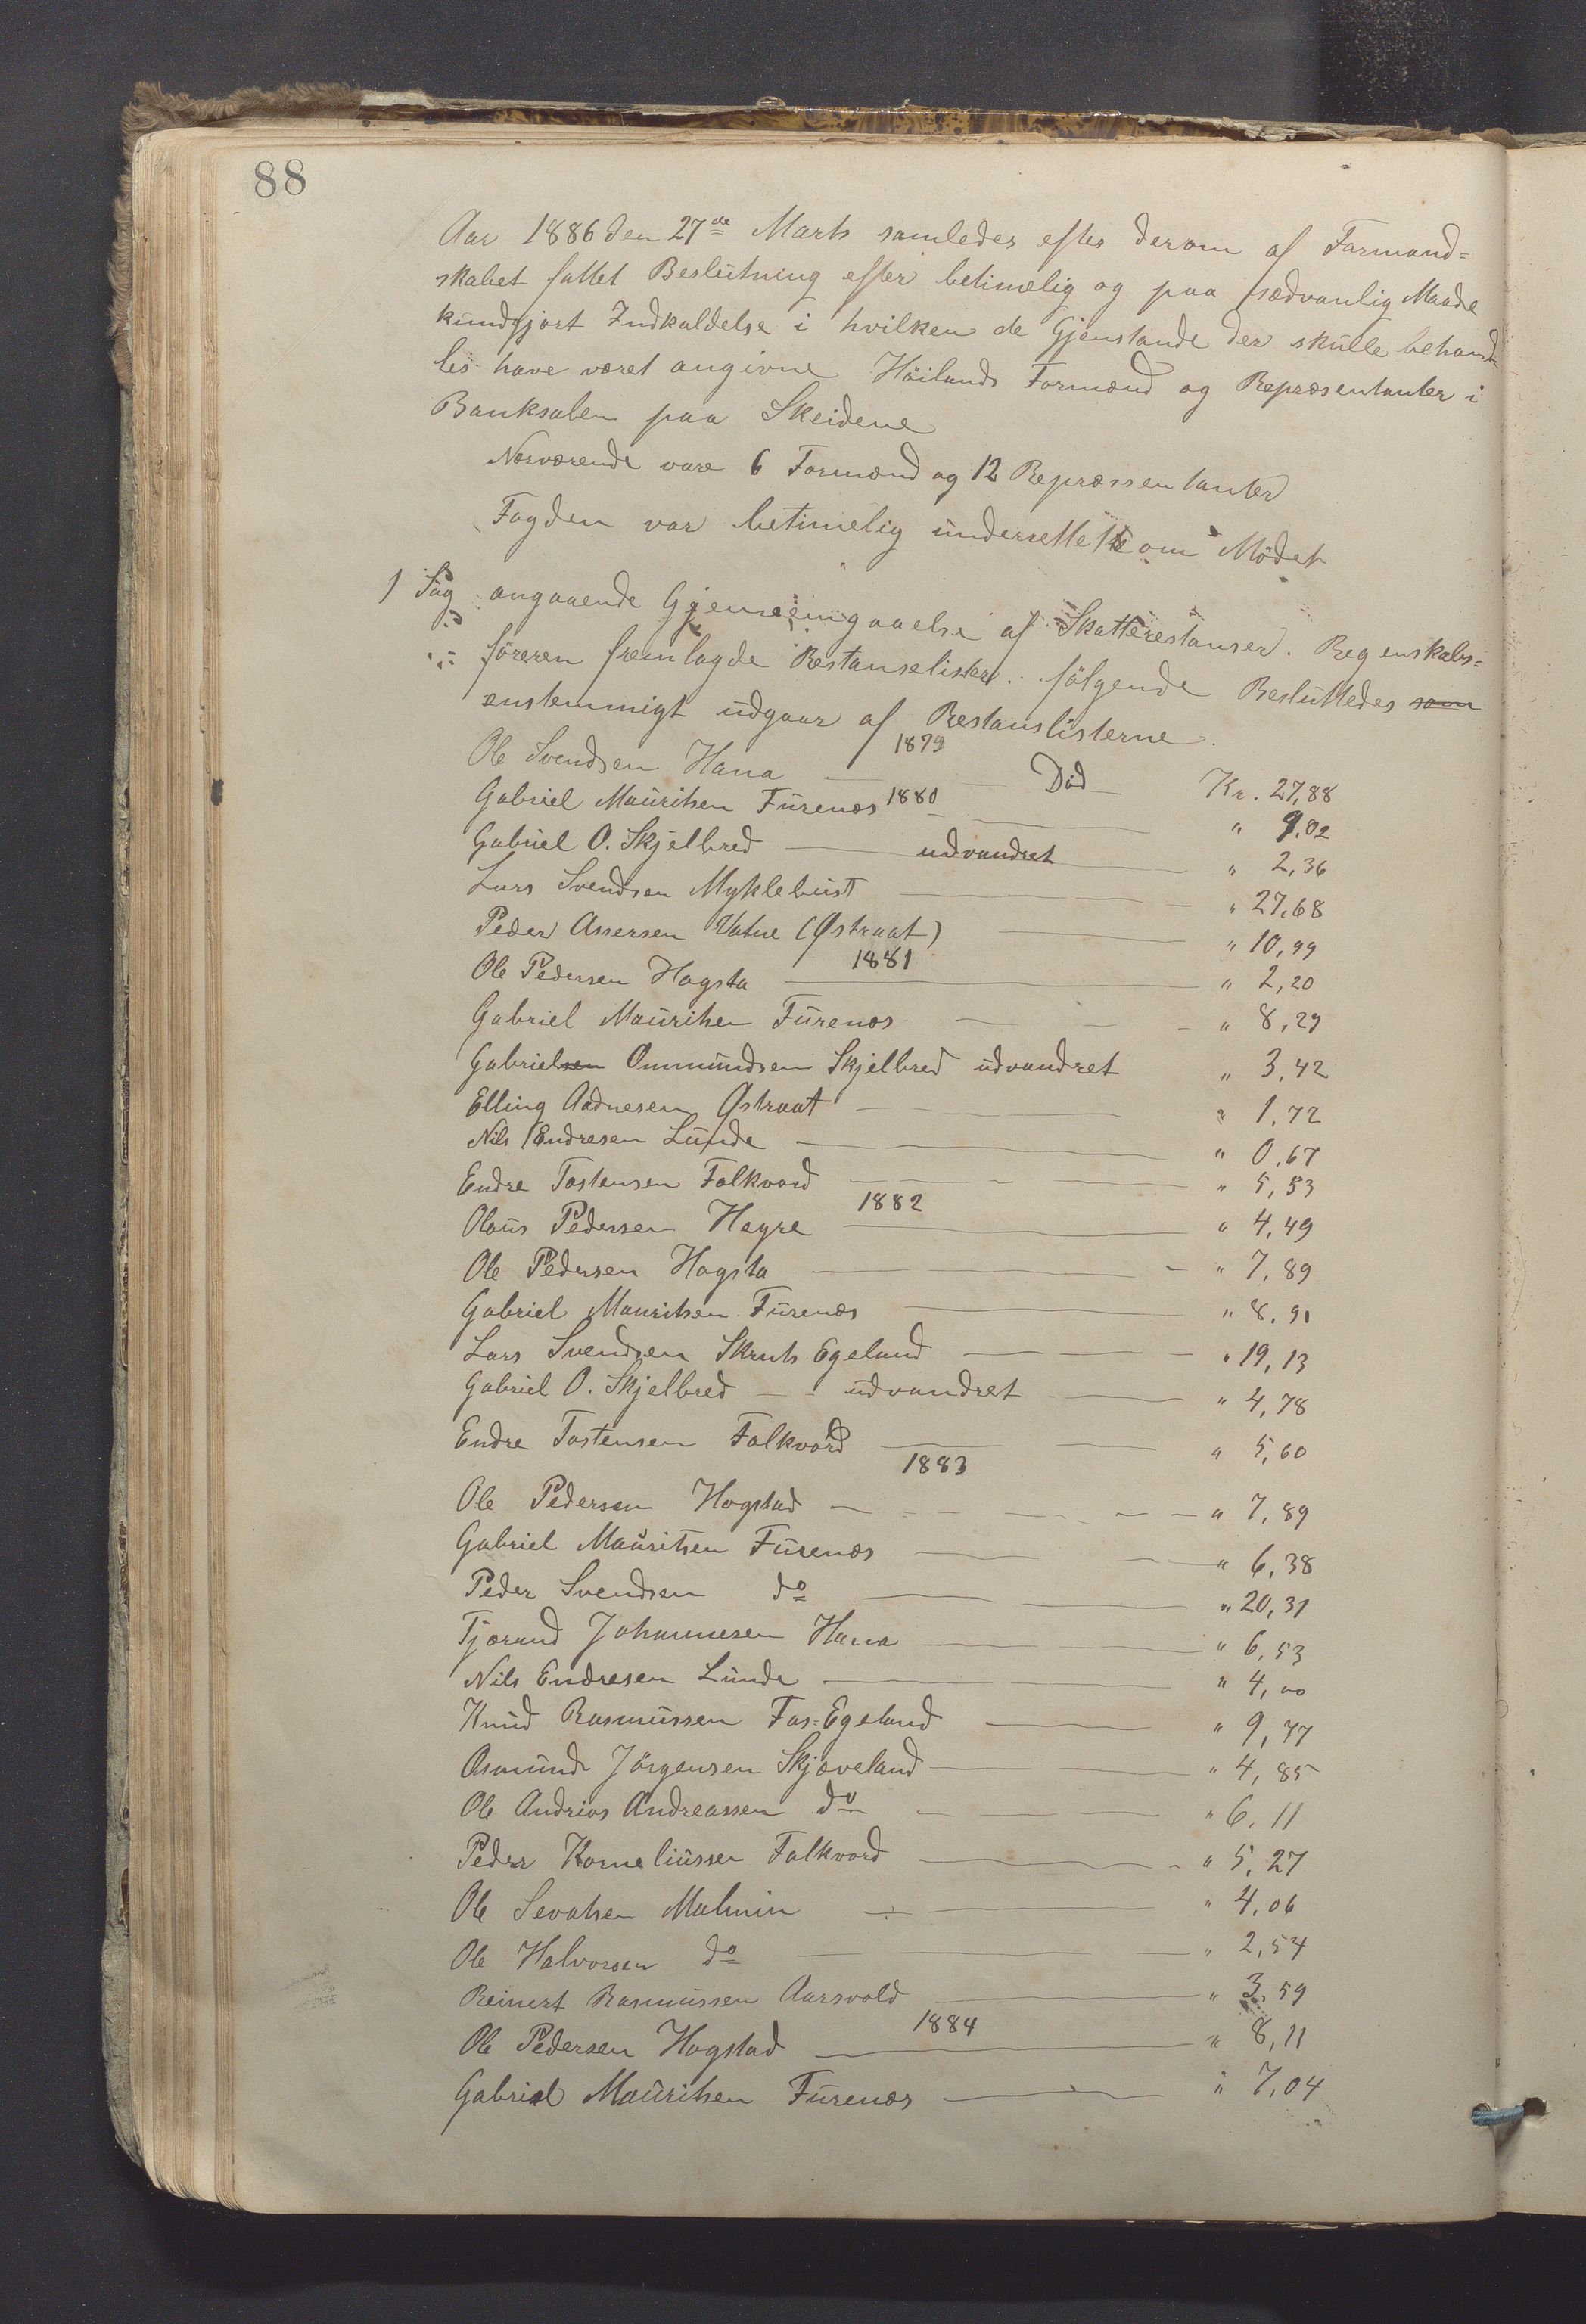 88
Aar 1886 den 27de Marts samledes efter derom af Formand=
skabet fattet Beslutning efter betimelig og paa sædvanlig Maade
kundgjort Indkaldelse i hvilken de Gjenstande der skulle behand
les have været angivne Höilands Formænd og Repræsentanter i
Banksalen paa Skeidene
Nærværende vare 6 Formænd og 12 Repræssentanter
Fogden var betimelig underrettet om Mödet
1 Sag angaaende Gjennemgaaelse af Skatterestanser. Regenskabs=
föreren fremlagde Restanselister. fölgende Besluttedes som
enstemmigt udgaar af Restanslisterne.
1879
Ole Svendsen Hana — Död — Kr. 27,88
Gabriel Mauritsen Furenæs 1880 — " 9.02
Gabriel O. Skjelbred — udvandret — " 2,36
Lars Svendsen Myklebust — " 27,68
Peder Assersen Vatne (Østraat) — " 10,99
1881
Ole Pedersen Hogsta — " 2,20
Gabriel Mauritsen Furenæs — " 8,29
Gabrielsen Ommundsen Skjelbred udvandret " 3,42
Elling Aadnesen Østraat — " 1,72
Nils Endresen Lunde — " 0,67
Endre Tostensen Folkvord — " 5,53
1882
Olaus Pedersen Hegre — " 4,49
Ole Pedersen Hogsta — " 7,89
Gabriel Mauritsen Furenæs — " 8,91
Lars Svendsen Skruts Egeland — " 19,13
Gabriel O. Skjelbred — udvandret — " 4,78
Endre Tostensen Folkvord — " 5,60
1883
Ole Pedersen Hogstad — " 7,89
Gabriel Mauritsen Furenæs — " 6,38
Peder Svendsen do — " 20,31
Tjærand Johannesen Hana — " 6,53
Nils Endresen Lunde — " 4,00
Knud Rasmussen Fos=Egeland — " 9,77
Asmund Jörgensen Skjæveland — " 4,85
Ole Andrias Andreassen do — " 6,11
Peder Korneliussen Folkvord — " 5,27
Ole Sevatsen Malmin — " 4,06
Ole Halvorsen do — " 2,54
Reinert Rasmussen Aarsvold — " 3,59
1884
Ole Pedersen Hogstad — " 8,11
Gabriel Mauritsen Furenæs — " 7,04